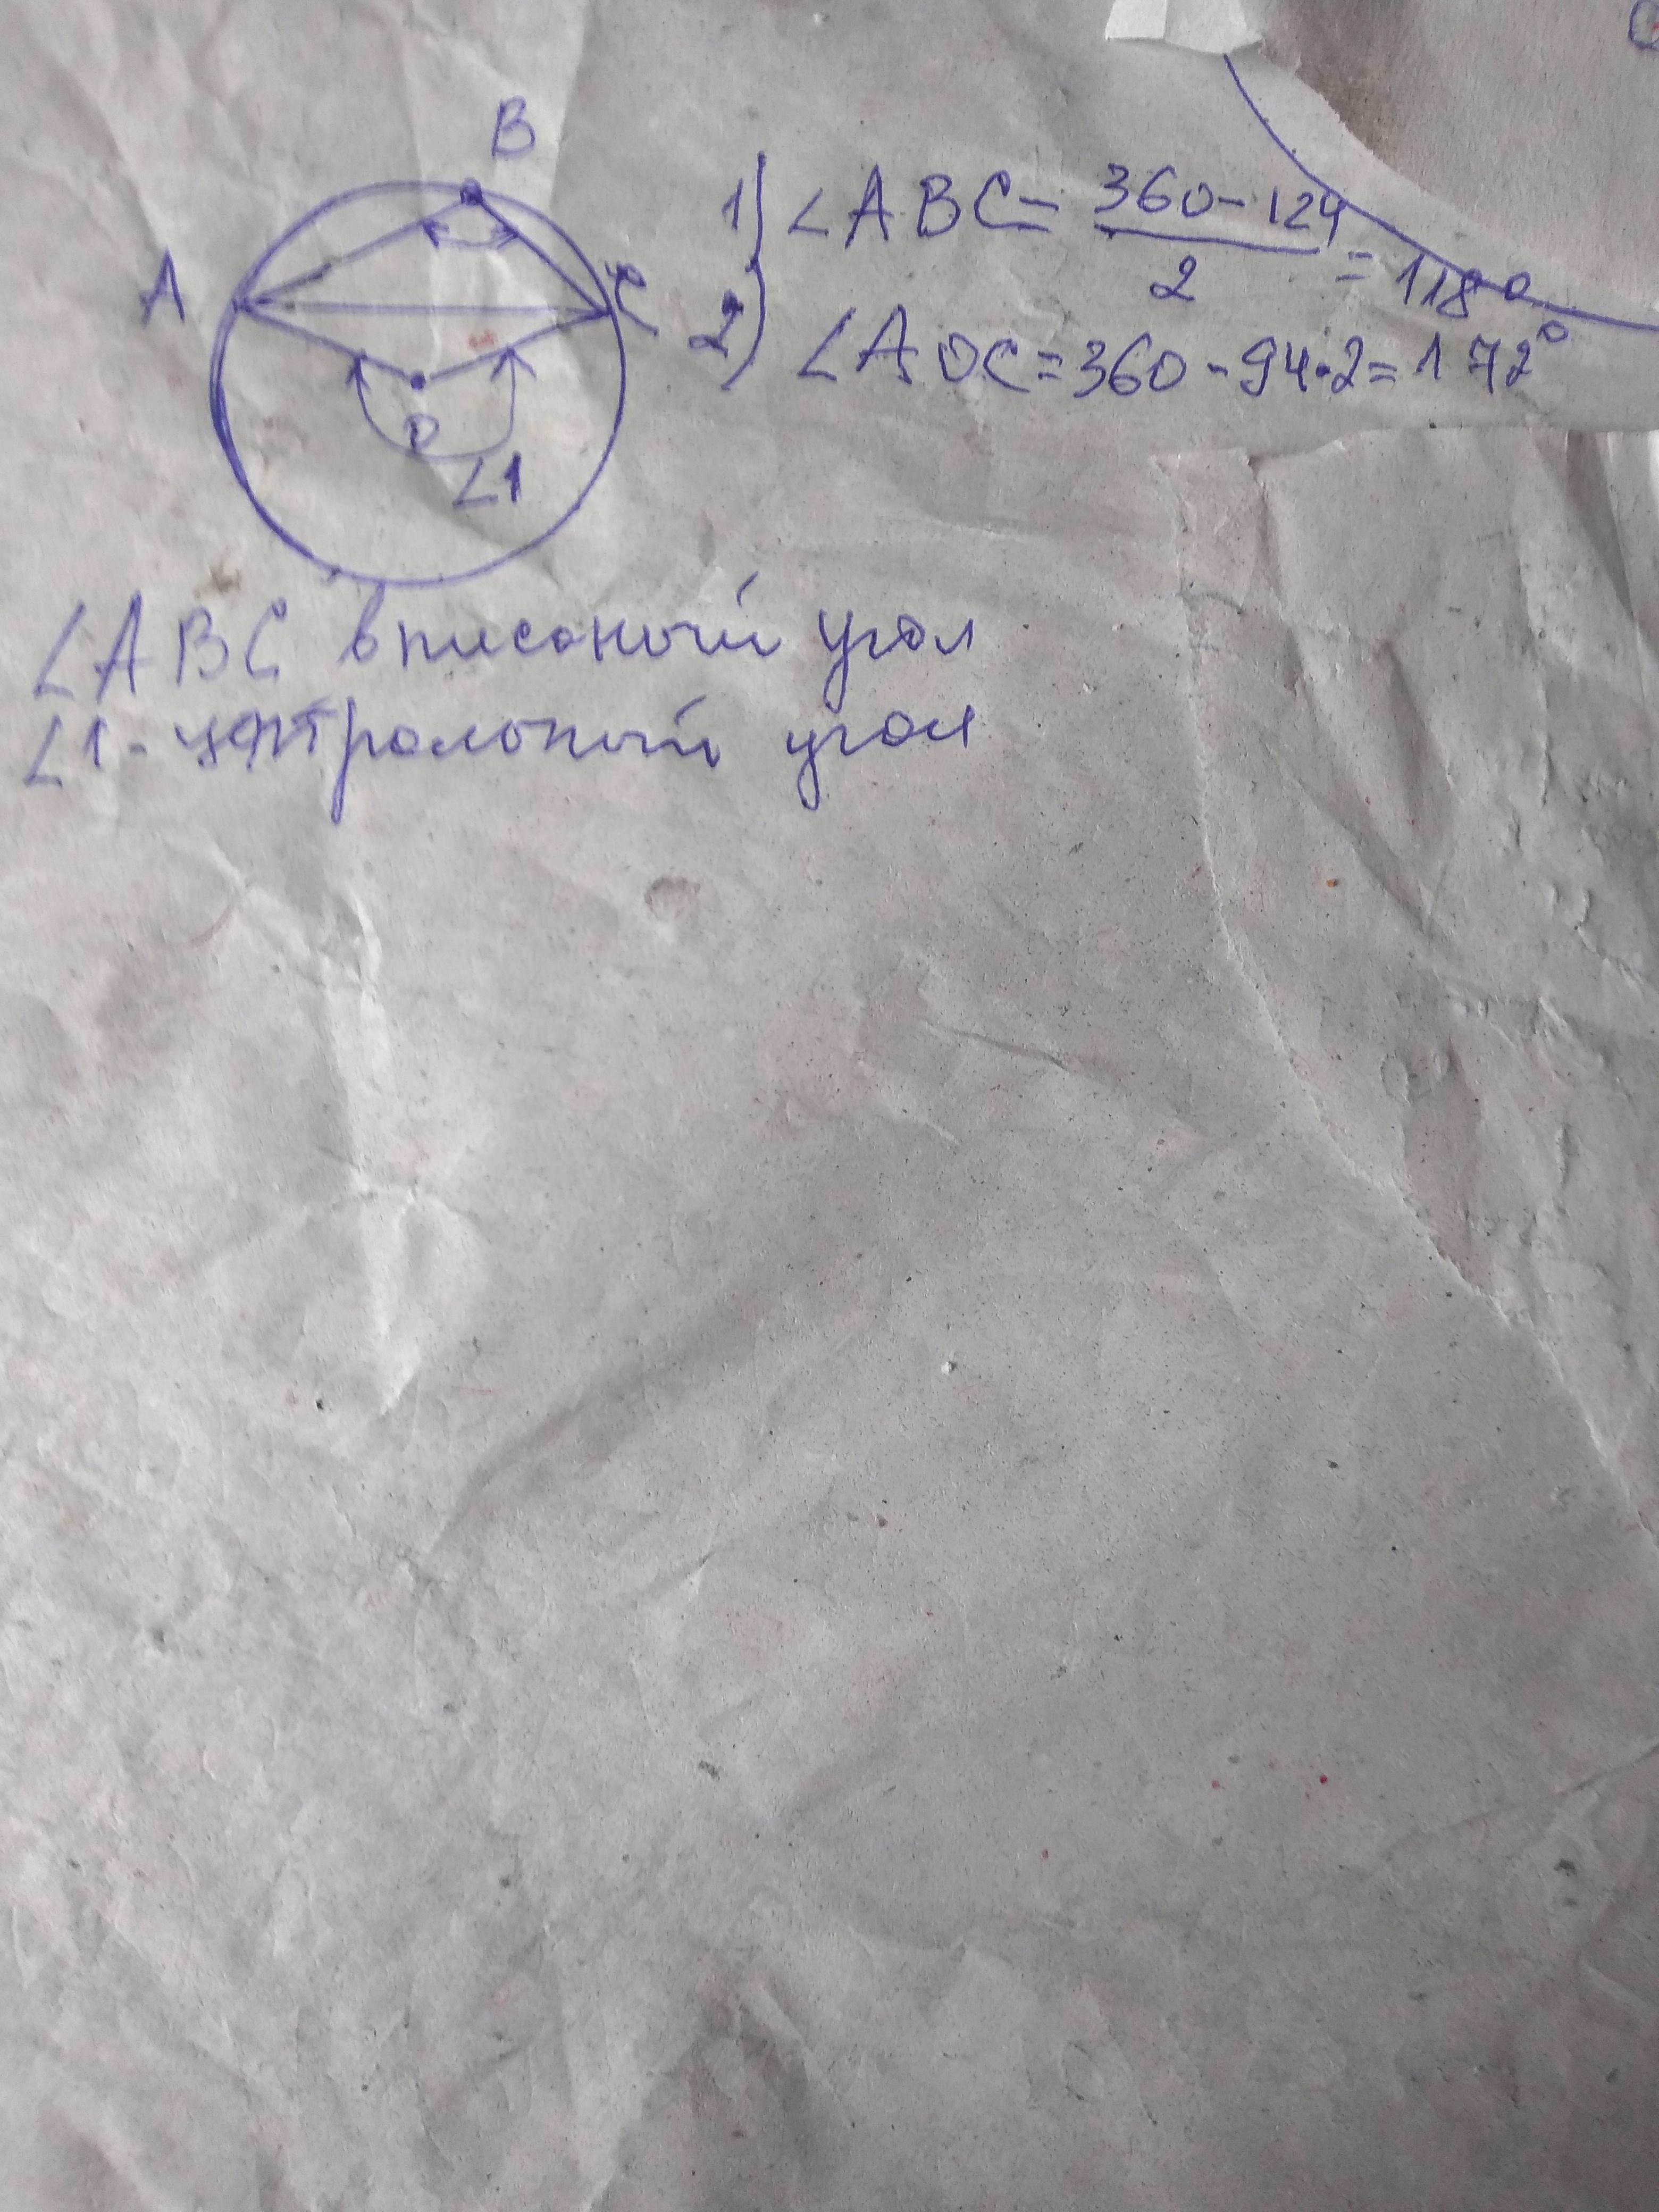 B
A
C
O
∠1
1) ∠ABC = (360-124)/2 = 118°
2) ∠AOC = 360 - 94·2 = 172°
∠ABC вписаный угол
∠1 - центральный угол